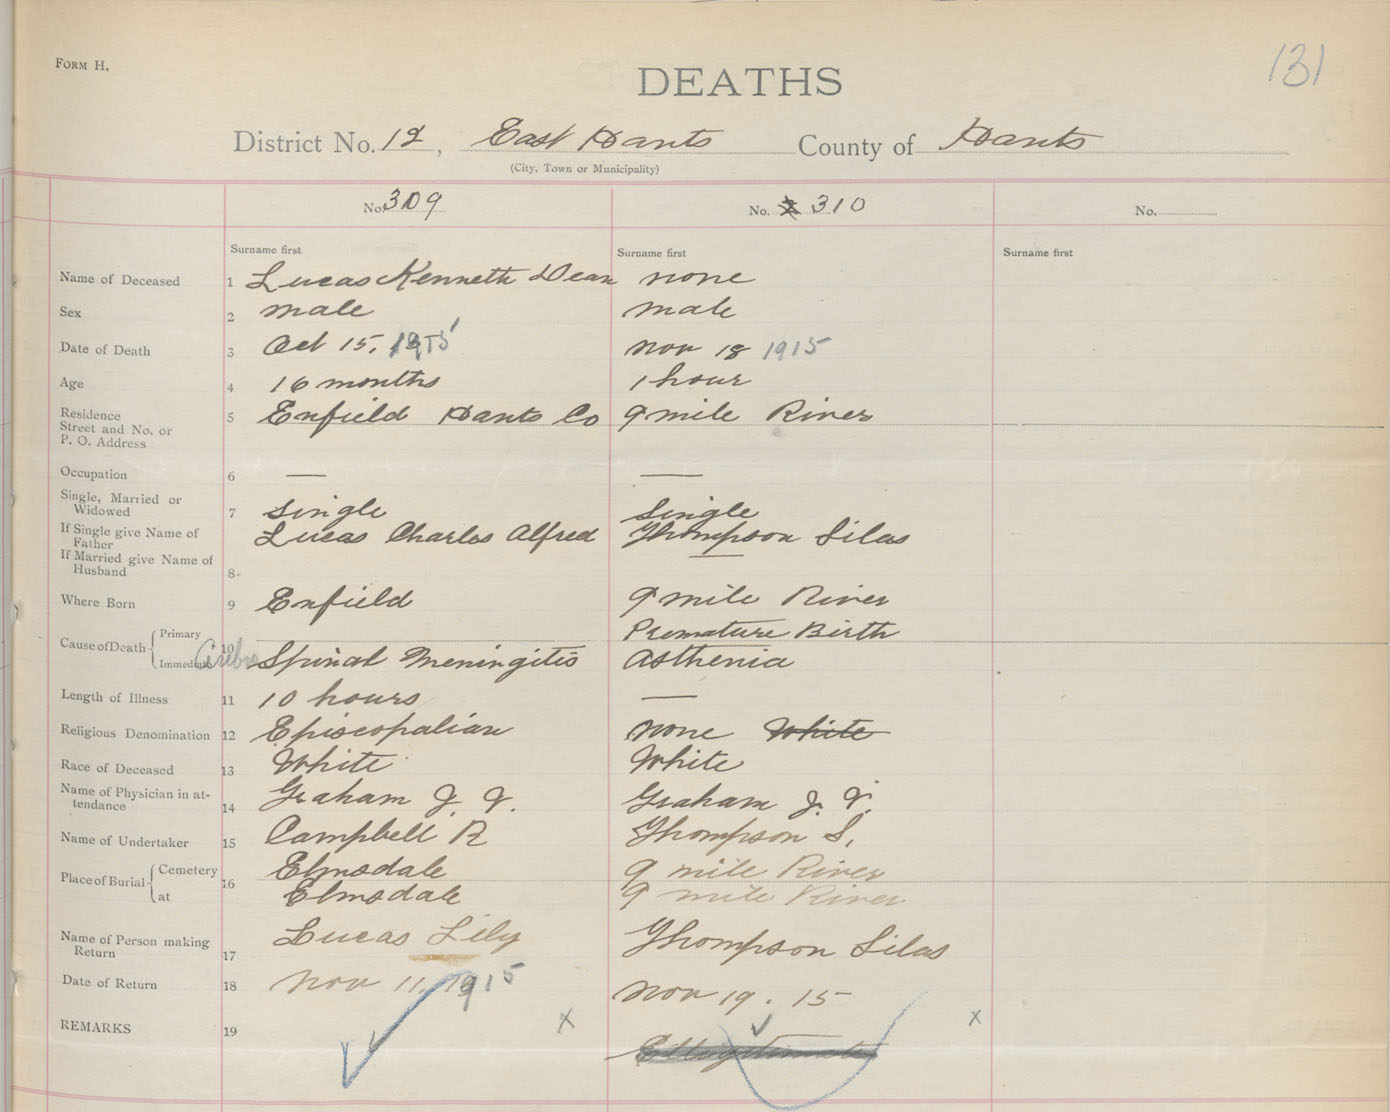 FORM H.
131
DEATHS
District No. 12, East Hants County of Hants
(City, Town or Municipality)
No. 309 No. 310 No.
Surname first Surname first Surname first
Name of Deceased 1 Lucas Kenneth Dean none
Sex 2 male male
Date of Death 3 Oct 15, 1915 nov 18 1915
Age 4 16 months 1 hour
Residence 5 Enfield Hants Co 9 mile River
Street and No. or
P. O. Address
Occupation 6 — —
Single, Married or
Widowed 7 single Single
If Single give Name of
Father Lucas Charles Alfred Thompson Silas
If Married give Name of
Husband 8 —
Where Born 9 Enfield 9 mile River
Cause of Death Primary Premature Birth
10 Immediate Spinal Meningitis asthenia
Length of Illness 11 10 hours —
Religious Denomination 12 Episcopalian none White
Race of Deceased 13 White White
Name of Physician in at-
tendance 14 Graham J. V. Graham J. V.
Name of Undertaker 15 Campbell R Thompson S.
Place of Burial Cemetery Elmsdale 9 mile River
16 at Elmsdale 9 mile River
Name of Person making
Return 17 Lucas Lily Thompson Silas
Date of Return 18 nov 11, 1915 nov 19. 15
REMARKS 19 x x